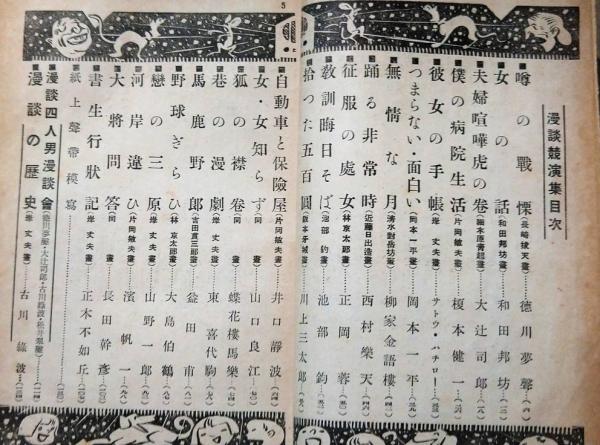 漫談競演集目次
噂の戰慄(長崎拔天畫)……德川夢聲
女の話(和田邦坊畫)……和田邦坊
夫婦喧嘩虎の卷(細木原青起畫)……大辻司郎
僕の病院生活(片岡敏夫畫)……榎本健一
彼女の手帳(岸丈夫畫)……サトウ・ハチロー
つまらない・面白い(岡本一平畫)……岡本一平
無情な月(清水對岳坊畫)……柳家金語樓
踊る非常時(近藤日出造畫)……西村樂天
征服の處女(林京太郎畫)……正岡蓉
敎訓晦日そば(池部鈞畫)……池部鈞
拾った五百圓……川上三太郎
5
自動車と保險屋(片岡敏夫畫)……井口靜波
女・女知らず(同)……山口良江
狐の襟卷(同)……蝶花樓馬樂
巷の漫劇(岸丈夫畫)……東喜代駒
馬鹿野郎(吉田貫三郎畫)……益田甫
野球ざらひ(林京太郎畫)……大島伯鶴
戀の三原山(岸丈夫畫)……山野一郎
河岸違ひ(片岡敏夫畫)……濱帆一
大將問答(岸丈夫畫)……長田幹彥
書生行狀記(岸丈夫畫)……正木不如丘
紙上聲帶模寫
漫談四人男漫談會(德川夢聲・大辻司郎・古川綠波・松井翠聲)
漫談の歷史(岸丈夫畫)……古川綠波